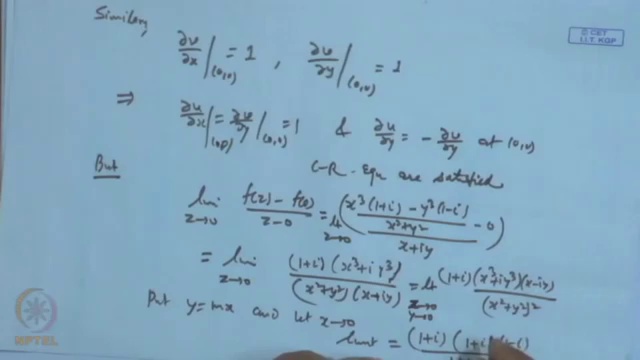 Similarly
∂v/∂x|(0,0) = 1 , ∂v/∂y|(0,0) = 1
⇒ ∂u/∂x|(0,0) = ∂v/∂y|(0,0) = 1 & ∂u/∂y = - ∂v/∂y at (0,0)
C-R Equ are satisfied
But
lim z→0 (f(z) - f(0))/(z-0) = Lt z→0 ((x³(1+i) - y³(1-i))/(x²+y²) - 0)/(x+iy)
= lim z→0 (1+i)(x³+iy³)/((x²+y²)(x+iy)) = Lt x→0 y→0 (1+i)(x³+iy³)(x-iy)/(x²+y²)²
Put y=mx and let x→0
limit = (1+i)(1+i
© CET
I.I.T. KGP
NPTEL